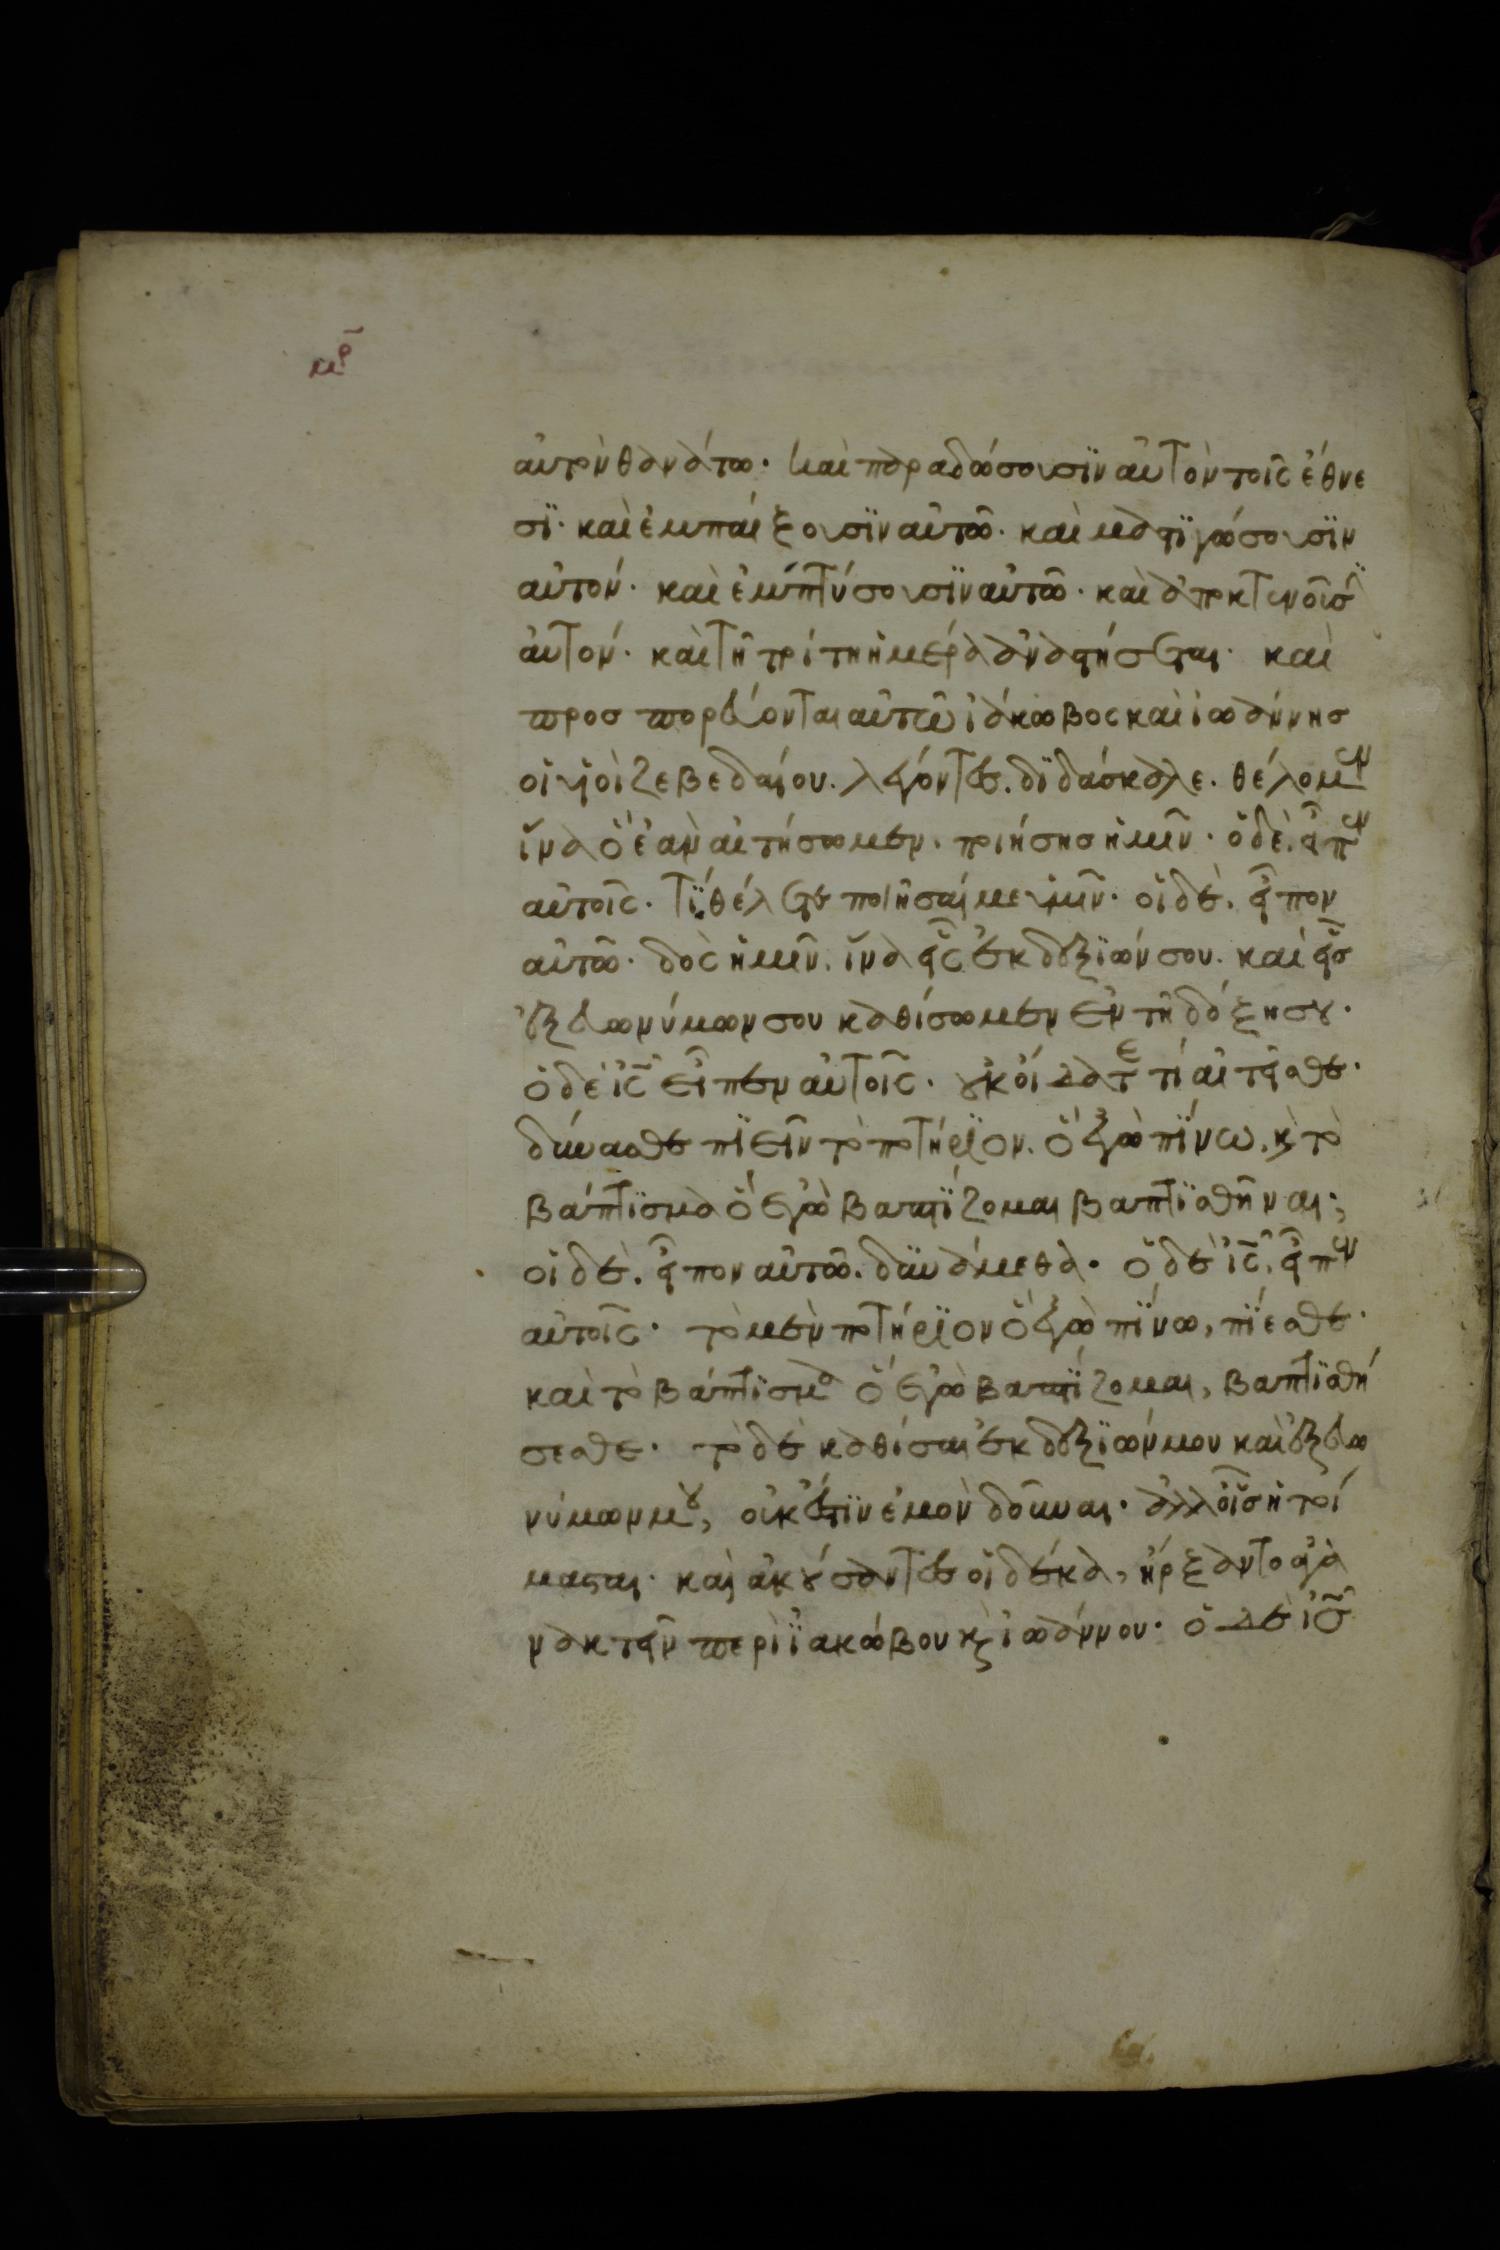 μρ
αὐτὸν θανάτω· καὶ παραδώσουσϊν αὐτὸν τοῖς ἔθνε
σϊ· καὶ ἐμπαίξουσϊν αὐτῶ· καὶ μαστϊγώσουσϊν
αὐτόν· καὶ ἐμπτύσουσϊν αὐτῶ· καὶ ἀποκτενοῦσϊ
αὐτόν· καὶ τῆ τρίτη ἡμέρα ἀναστήσεται· καὶ
προσπορεύονται αὐτῶ ἰάκωβος καὶ ἰωάννησ
οἱ υἱοὶ ζεβεδαίου. λέγοντες. δϊδάσκαλε. θέλομεν
ἵνα ὃ ἐὰν αἰτήσωμεν. ποιήσησ ἡμῖν· ὁ δὲ. εἶπεν
αὐτοῖς· τϊ θέλετε ποιῆσαί με ὑμῖν· οἱ δὲ. εἶπον
αὐτῶ· δὸς ἡμῖν. ἵνα εἷς ἐκ δεξϊῶν σου. καὶ εἷσ
ἐξ εὐωνύμων σου καθίσωμεν ἐν τῆ δόξη σου·
ὁ δὲ ις εἶπεν αὐτοῖς· οὐκ οἴδατε τί αἰτεῖσθε·
δύνασθε πϊεῖν τὸ ποτήρϊον. ὃ ἐγὼ πϊνω. κ τὸ
βάπτϊσμα ὃ ἐγὼ βαπτϊζομαι βαπτϊσθῆναι;
οἱ δὲ. εἶπον αὐτῶ. δϋνάμεθα· ὁ δὲ ις. εἶπεν
αὐτοῖς· τὸ μὲν ποτήρϊον ὃ ἐγὼ πϊνω, πϊεσθε·
καὶ τὸ βάπτϊσμα ὃ ἐγὼ βαπτϊζομαι, βαπτϊσθή
σεσθε· τὸ δὲ καθίσαι ἐκ δεξϊῶν μου καὶ ἐξ εὐω
νύμων μου, οὐκ ἔστϊν ἐμὸν δοῦναι· ἀλλ οἷσ ἡτοί
μασται· καὶ ἀκούσαντες οἱ δέκα, ἤρξαντο ἀγα
νακτεῖν περὶ ϊακώβου κ ἰωάννου· ὁ δὲ ισ